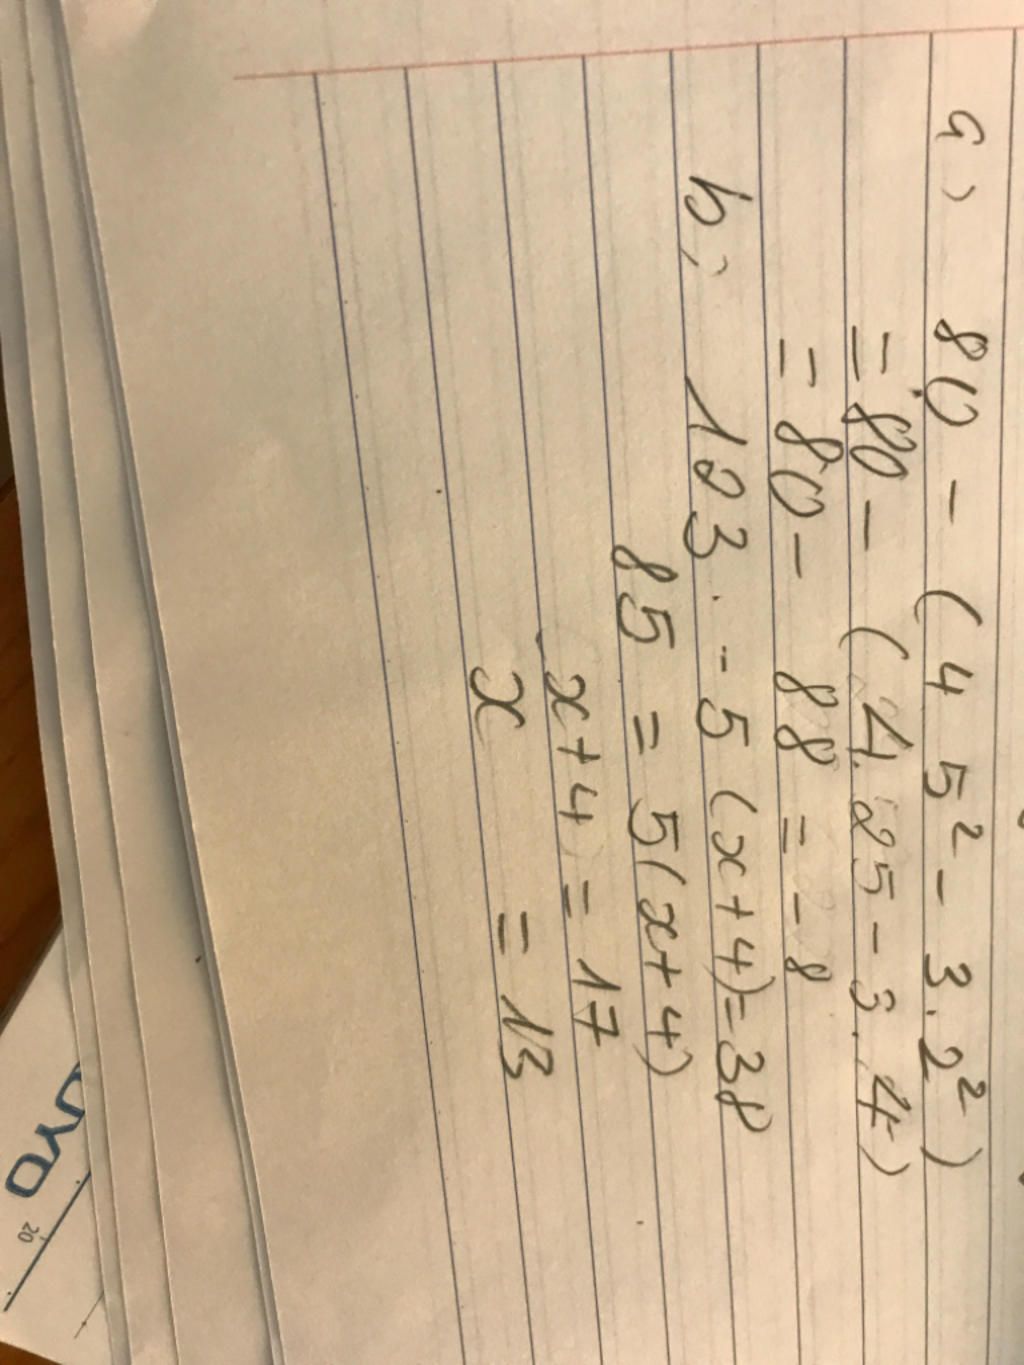 a) 80 - (4 5² - 3.2²)
= 80 - (4.25 - 3.4)
= 80 - 88 = -8
b, 123 - 5 (x+4) = 38
85 = 5(x+4)
x+4 = 17
x = 13
20